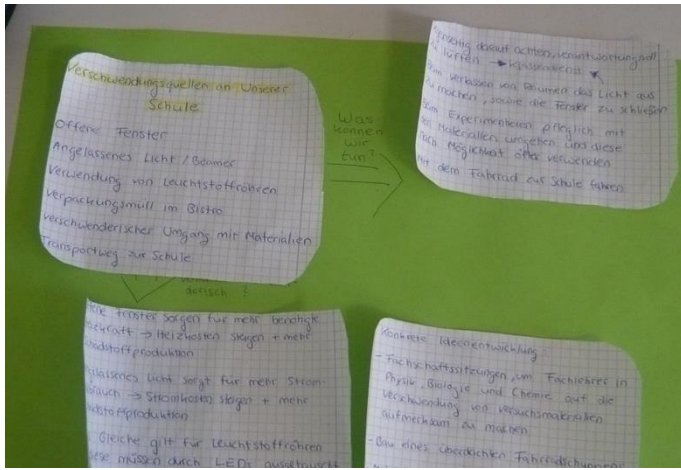 Verschwendungsquellen an Unserer
Schule
Offene Fenster
Angelassenes Licht / Beamer
Verwendung von Leuchtstoffröhren
Verpackungsmüll im Bistro
verschwenderischer Umgang mit Materialien
Transportweg zur Schule
Was
können
wir
tun?
darauf achten, verantwortungsvoll
zu lüften
Verlassen von Räumen das Licht aus
zu machen, sowie die Fenster zu schließen
Beim Experimentieren pfleglich mit
den Materialien umgehen und diese
nach Möglichkeit öfter verwenden
Mit dem Fahrrad zur Schule fahren
derisch?
Fenster sorgen für mehr benötigte
→ Heizkosten steigen + mehr
Schadstoffproduktion
Angelassenes Licht sorgt für mehr Strom-
→ Stromkosten steigen + mehr
Schadstoffproduktion
Gleiche gilt für Leuchtstoffröhren
müssen durch LEDs ausgetauscht
Konkrete Ideenentwicklung
- Fachschaftssitzungen, um Fachlehrer in
Physik, Biologie und Chemie auf die
Verschwendung von Versuchsmaterialien
aufmerksam zu machen
- Bau eines überdachten